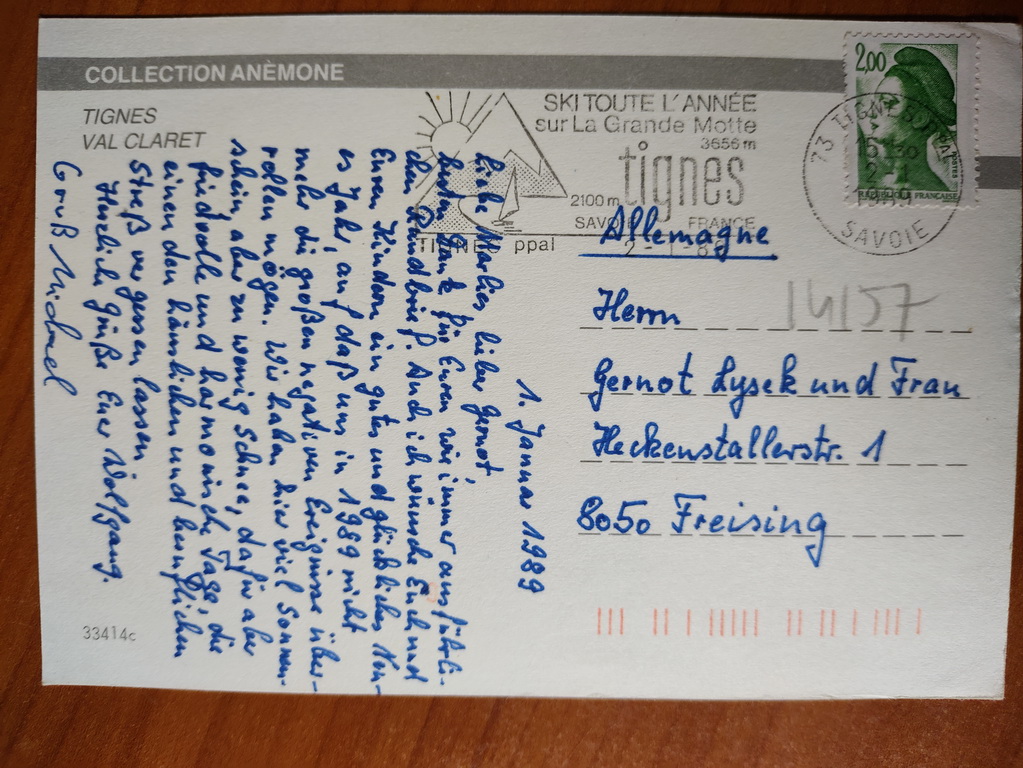 COLLECTION ANÈMONE
TIGNES
VAL CLARET
SKI TOUTE L'ANNÉE
sur La Grande Motte
3656 m
tignes
2100 m
SAVOIE FRANCE
TIGNES ppal
2-1-8
2,00
POSTES
REPUBLIQUE FRANÇAISE
73 TIGNES
15
2-1
SAVOIE
Allemagne
14157
Herrn
Gernot Lysek und Frau
Heckenstallerstr. 1
8050 Freising
1. Januar 1989
Liebe Marlies, lieber Gernot,
habt Dank für Euren wie immer ausführli-
chen Rundbrief. Auch ich wünsche Euch und
Euren Kindern ein gutes und glückliches Neu-
es Jahr, auf daß uns in 1989 nicht
mehr die großen negativen Ereignisse über-
rollen mögen. Wir haben hier viel Sonnen-
schein aber zu wenig Schnee, dafür aber
friedvolle und harmonische Tage, die
einen den häuslichen und beruflichen
Streß vergessen lassen
Herzliche Grüße Euer Wolfgang.
Gruß Michael
33414c